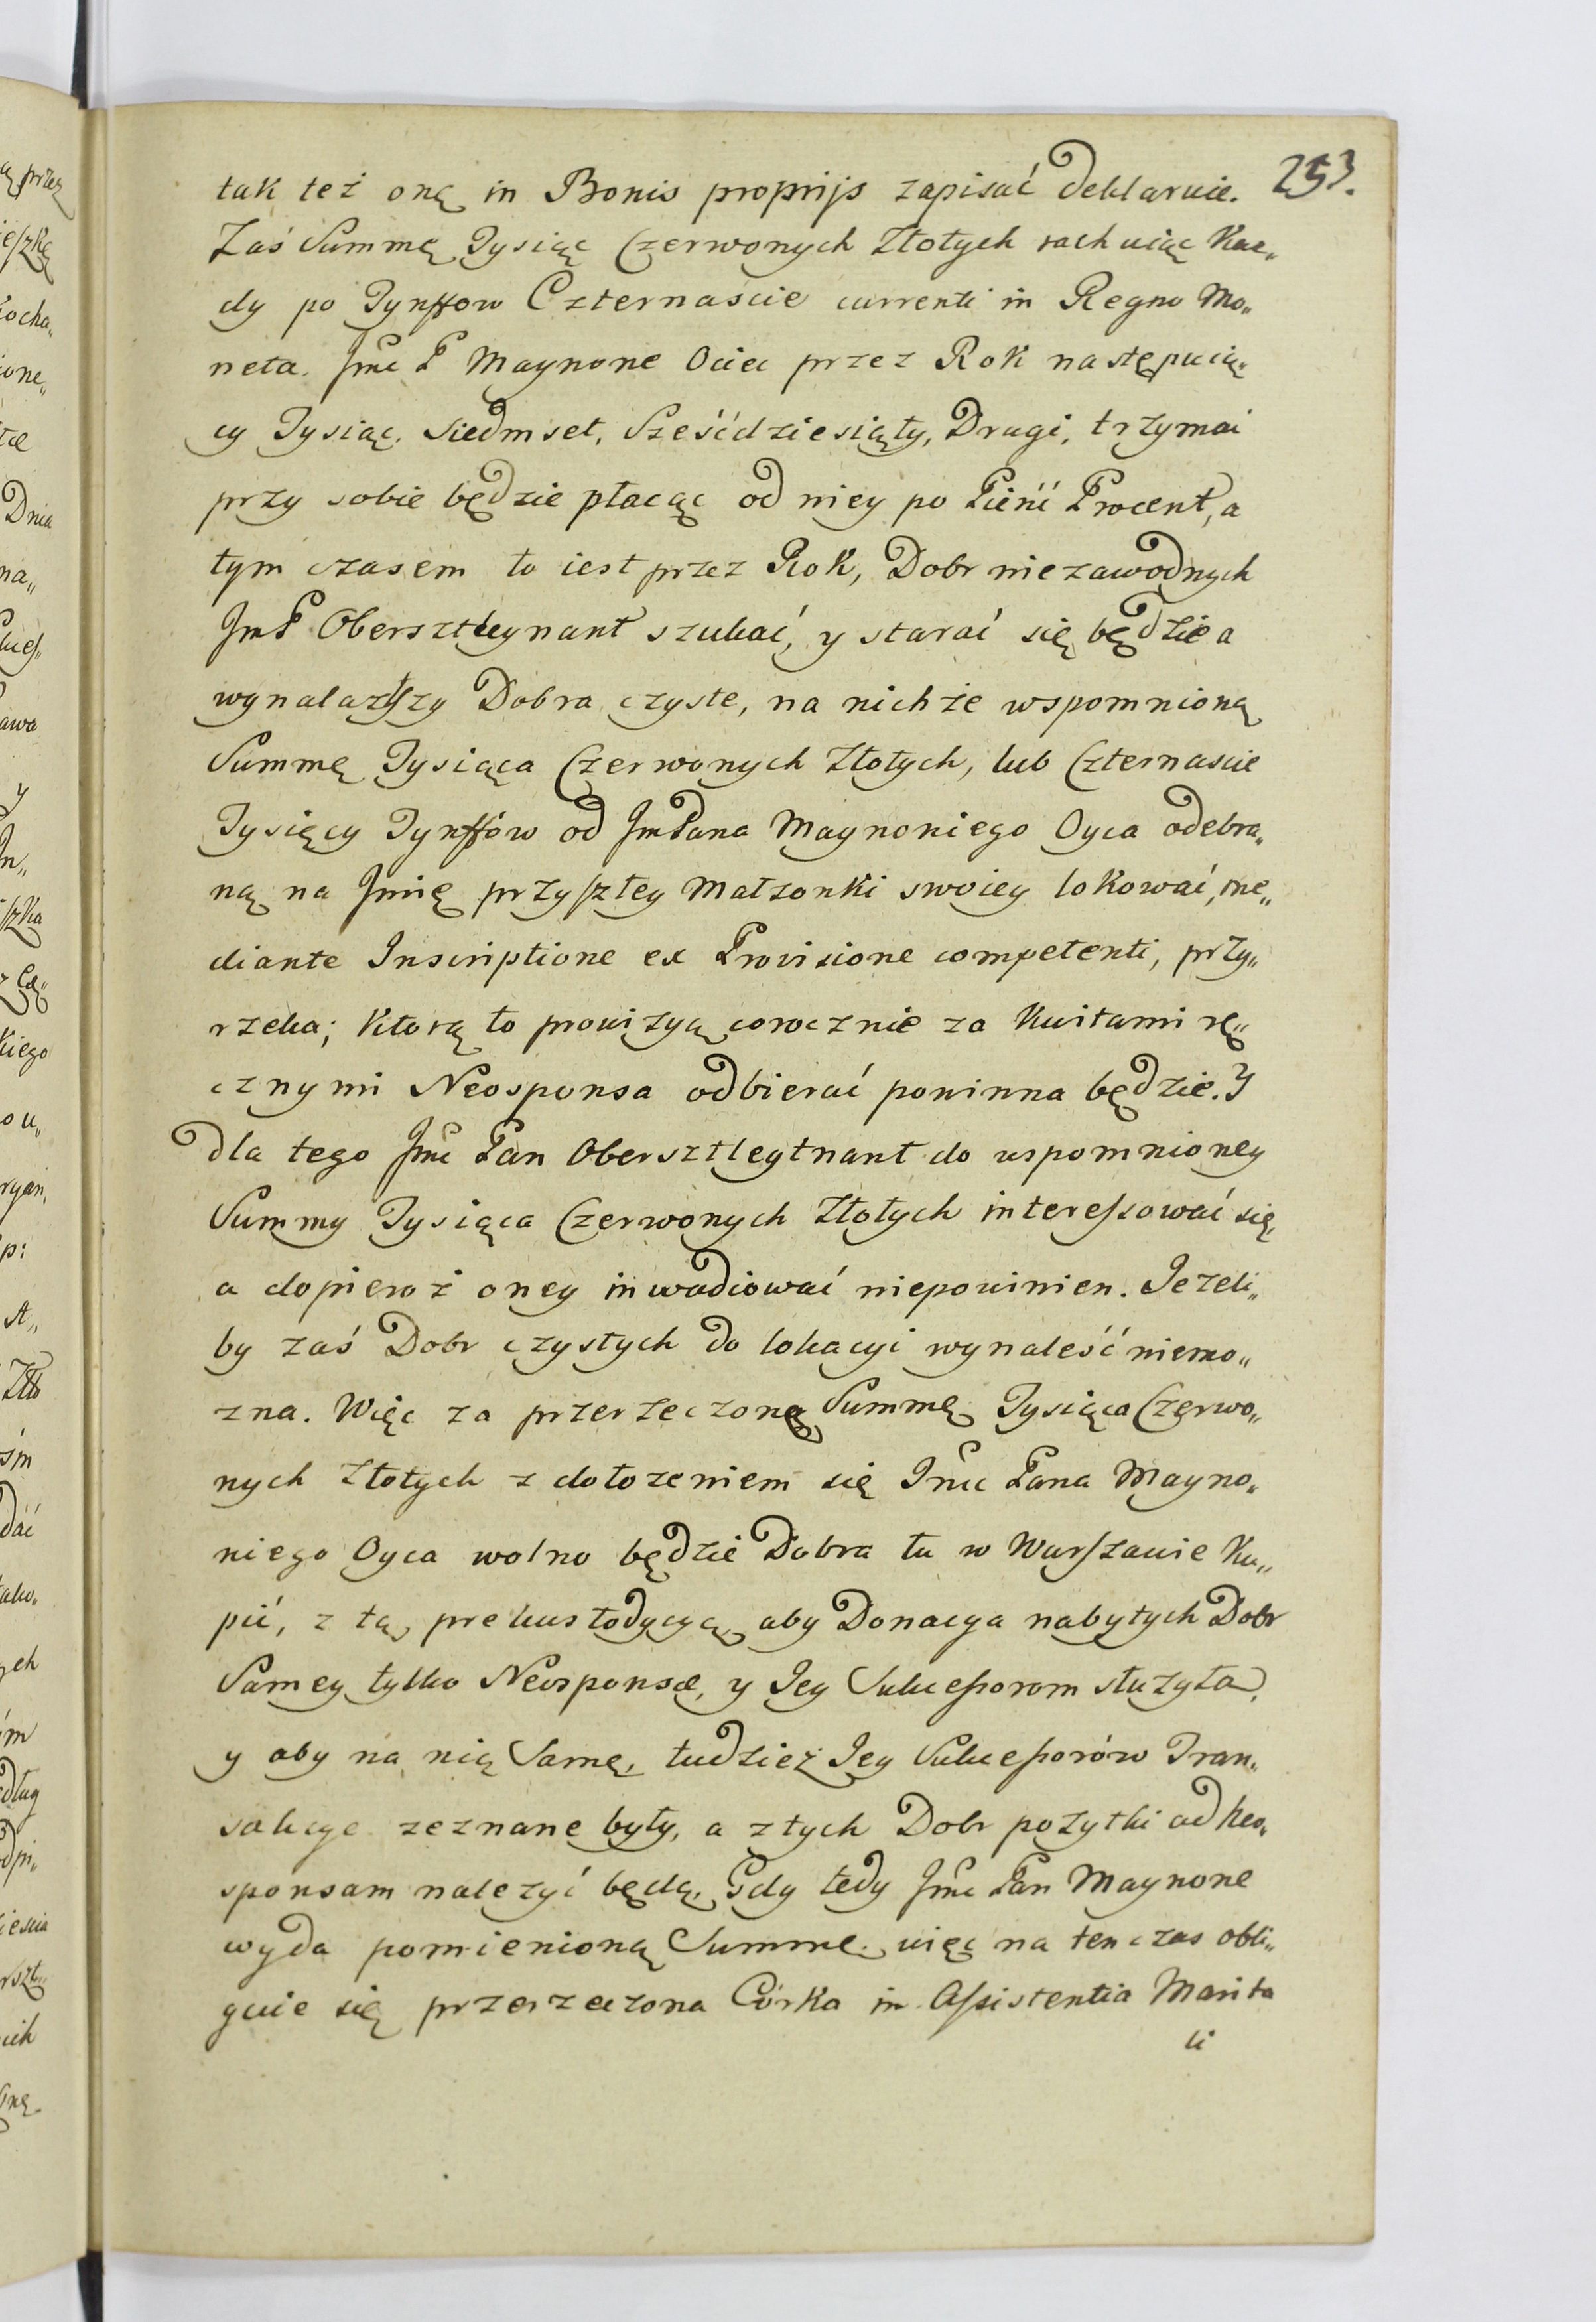 253.
tak też oną in Bonis proprijs zapisać deklaruie.
Zaś Summę Tysiąc Czerwonych Złotych rachuiąc Kaz„
dy po Tynffow Czternascie currenti in Regno Mo„
neta. Jmć P Maynone Ociec przez Rok następuią„
cy Tysiąc, Siedmset, Sześćdziesiąty, Drugi, trzymać
przy sobie będzie płacąc od niey po Pięńć Procent, a
tym czasem to iest przez Rok, Dobr niezawodnych
JmP Obersztleynant szukać, y starać się będzie a
wynalazłszy Dobra czyste, na nichże wspomnioną
Summę Tysiąca Czerwonych Złotych, lub Czternascie
Tysięcy Tynffów od JmPana Maynoniego Oyca odebra„
ną na Jmię przyszłey Małzonki swoiey lokować, me„
diante Inscriptione ex Provisione competenti, przy„
rzeka; Ktorą to prowizyą corocznie za Kwitami rę„
cznymi Neosponsa odbierać powinna będzie. Y
dla tego Jmć Pan Obersztleytnant do wspomnioney
Summy Tysiąca Czerwonych Złotych interessować się,
a dopieroż oney inwadiować niepowinien. Jezeli„
by zaś Dobr czystych do lokacyi wynaleść niemo„
zna. Więc za przerzeczoną Summę Tysiąca Czerwo„
nych Złotych z dołozeniem się Jmć Pana Mayno„
niego Oyca wolno będzie Dobra tu w Warszawie Ku„
pić, z tą prekustodycyą, aby Donacya nabytych Dobr
Samey tylko Neosponsæ, y Jey Sukcessorom słuzyła,
y aby na nią Samę, tudzież Jey Sukcessorów Tran„
sakcye zeznane były, a z tych Dobr pozytki ad Neo„
sponsam nalezyć będą, Gdy tedy Jmć Pan Maynone
wyda pomienioną Summę, więc na tenczas obli„
guie się przerzeczona Córka in Assistentia Marita
li